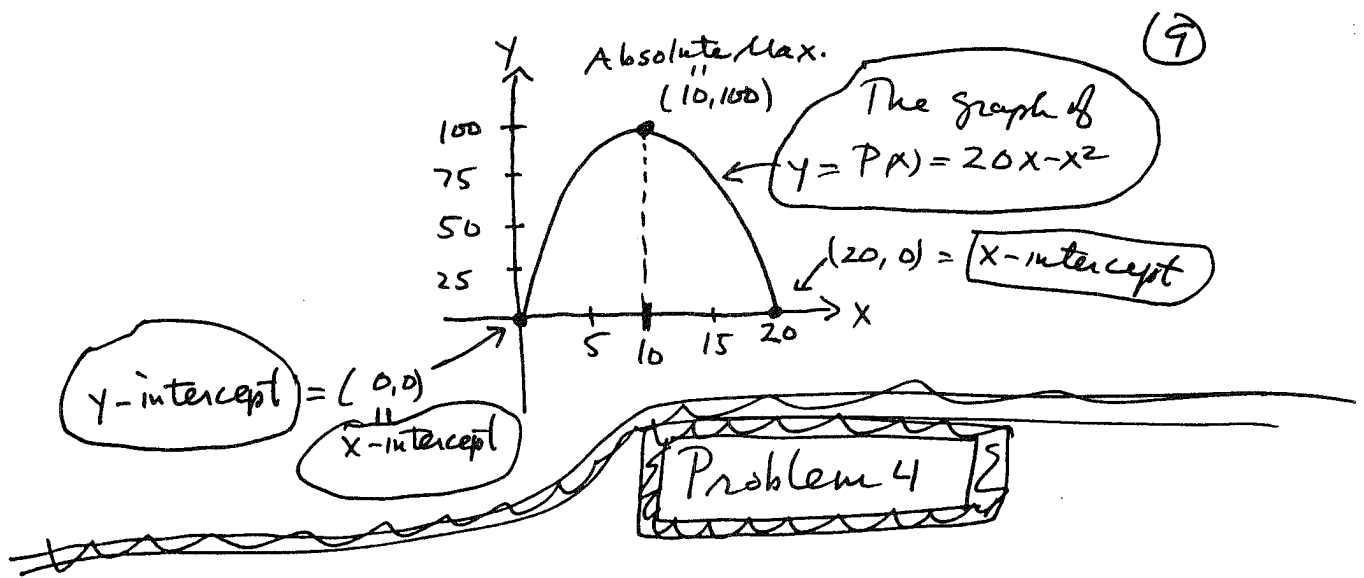 9
Y
Absolute Max.
"
(10,100)
The graph of
y = P(x) = 20x-x²
100
75
50
25
(20, 0) = x-intercept
5 10 15 20 X
y-intercept = (0,0)
"
x-intercept
Problem 4